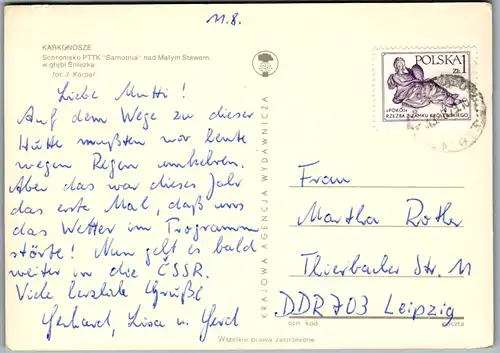 11.8.
KARKONOSZE
Schronisko PTTK "Samotnia" nad Małym Stawem,
w głębi Śnieżka
fot. J. Korpal
Liebe Mutti!
Auf dem Wege zu dieser
Hütte mußten wir heute
wegen Regen umkehren.
Aber das war dieses Jahr
das erste Mal, daß uns
das Wetter im Programm
störte! Nun geht es bald
weiter in die ČSSR.
Viele herzliche Grüße
Gerhard, Lisa u. Gerd
KRAJOWA AGENCJA WYDAWNICZA
POLSKA 1
ZŁ
"POKÓJ"
RZEŹBA Z ZAMKU KRÓLEWSKIEGO
Frau
Martha Rotler
Thierbacher Str. 11
DDR 703 Leipzig
ozn. kod. poczta
Wszelkie prawa zastrzeżone